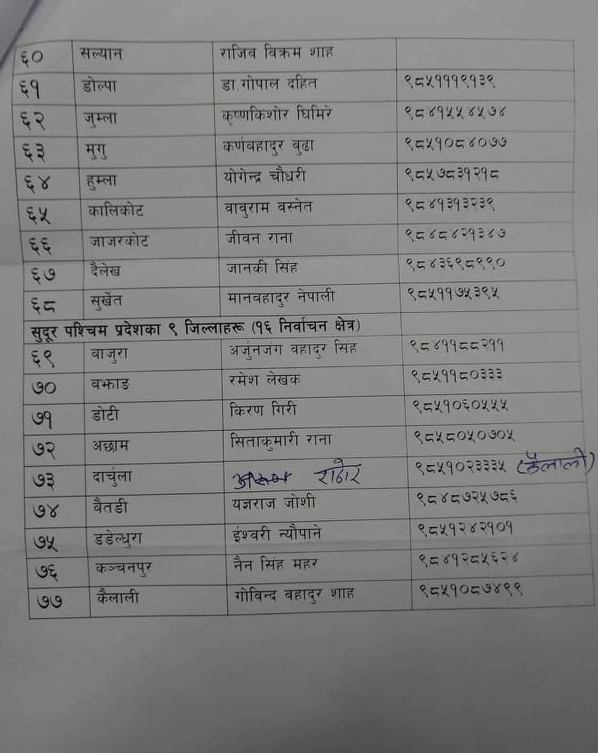 ६० सल्यान राजिव विक्रम शाह
६१ डोल्पा डा.गोपाल दहित ९८५१११९१३९
६२ जुम्ला कृष्णकिशोर घिमिरे ९८४१५५४५७४
६३ मुगु कर्णवहादुर वुढा ९८५१०८४०७७
६४ हुम्ला योगेन्द्र चौधरी ९८५७८३१२१८
६५ कालिकोट वावुराम वस्नेत ९८४१३१३२३९
६६ जाजरकोट जीवन राना ९८४८४२१३४७
६७ दैलेख जानकी सिंह ९८४३६९८९९०
६८ सुर्खेत मानवहादुर नेपाली ९८५११७५३९५
सुदूर पश्चिम प्रदेशका ९ जिल्लाहरू (१६ निर्वाचन क्षेत्र)
६९ वाजुरा अर्जुनजंग वहादुर सिंह ९८४११८८२११
७० वझाङ रमेश लेखक ९८५११८०३३३
७१ डोटी किरण गिरी ९८५१०६०५५५
७२ अछाम सिताकुमारी राना ९८५८०५०७०५
७३ दार्चुला राठोर ९८५१०२३३३५ (कैलाली)
७४ वैतडी यज्ञराज जोशी ९८४८७२५७८६
७५ डडेल्धुरा ईश्वरी न्यौपाने ९८५१२४२१०१
७६ कञ्चनपुर नैन सिंह महर ९८४१२८५६२४
७७ कैलाली गोविन्द वहादुर शाह ९८५१०८७४९९